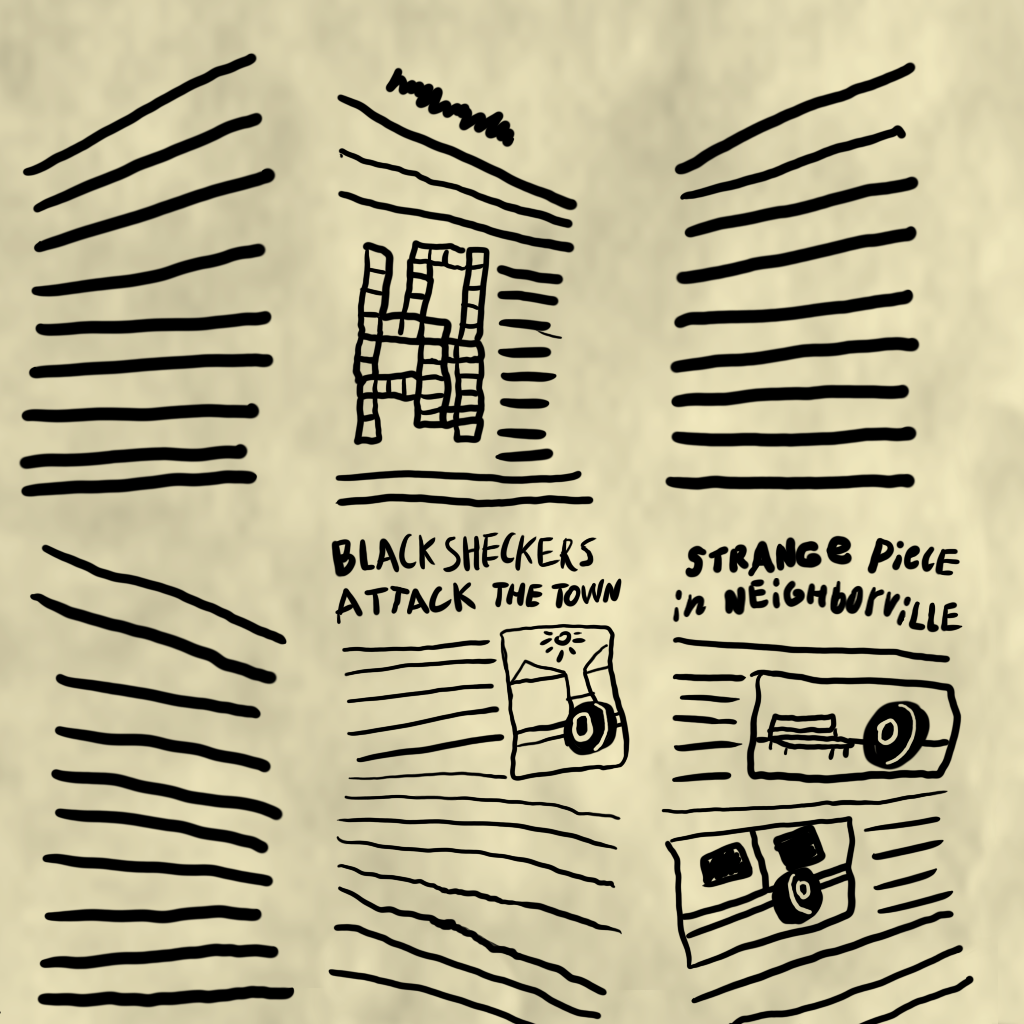 BLACK SHECKERS
ATTACK THE TOWN
STRANGe PiECE
in NEiGHborViLLE